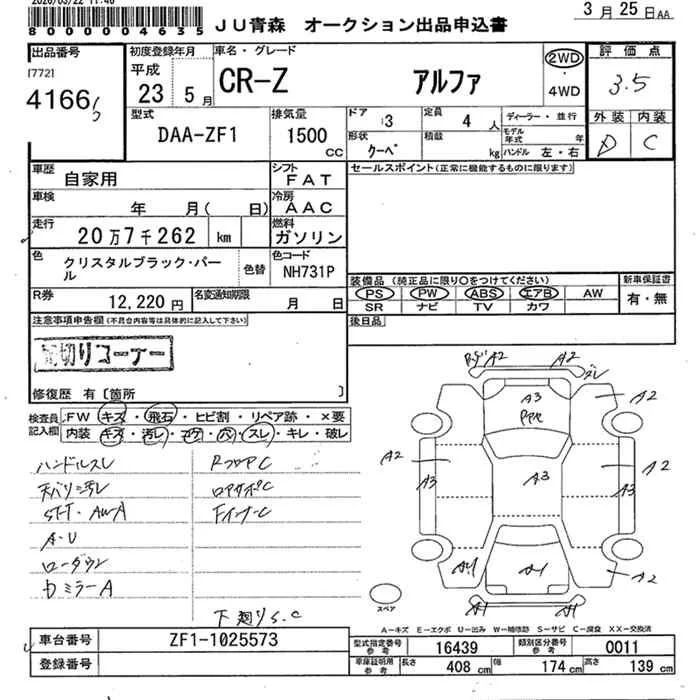 2026/03/22 11:46
8000000004635
JU青森 オークション出品申込書
3月25日AA
出品番号
[772]
4166
初度登録年月
平成
23 5月
車名・グレード
CR-Z アルファ
2WD
4WD
評価点
3.5
型式
DAA-ZF1
排気量
1500
CC
ドア
3
定員
4 人
形状
クーペ
積載
kg
ディーラー・並行
モデル年式 年
ハンドル 左・右
外装 内装
D C
車歴
自家用
シフト
FAT
セールスポイント(正常に機能するものに限ります)
車検
年 月( 日)
冷房
AAC
走行
20万7千262 km
燃料
ガソリン
色
クリスタルブラック・パール
色替
色コード
NH731P
装備品 (純正品に限り○をつけてください)
新車保証書
PS PW ABS エアB AW
有・無
SR ナビ TV カワ
R券
12,220円
名変通知期限
月 日
後日品
注意事項申告欄(不具合内容等は具体的に記入して下さい)
売切りコーナー
修復歴 有〔箇所 〕
検査員記入欄
FW キズ・飛石・ヒビ割・リペア跡・×要
内装 キズ・汚レ・コゲ・穴・スレ・キレ・破レ
ハンドルスレ
RフロアC
天バリ汚レ
ロアサポC
ST・AWA
FインナーC
A・U
ローダウン
カミラーA
下廻りS.C
A2 A2
A3
A2
A2
A3
A3
A3
A2
A1
A1
A2
A1
A1
スペア
A-キズ E-エクボ U-凹み W-補修跡 S-サビ C-腐食 XX-交換済
車台番号
ZF1-1025573
登録番号
型式指定番号
参考
16439
類別区分番号
参考
0011
車庫証明用
参考
長さ 408 cm
幅 174 cm
高さ 139 cm